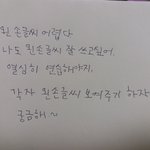 왼손글씨 어렵다
나도 왼손글씨 잘 쓰고싶어.
열심히 연습해야지.
각자 왼손글씨 보여주기 하자
궁금해~